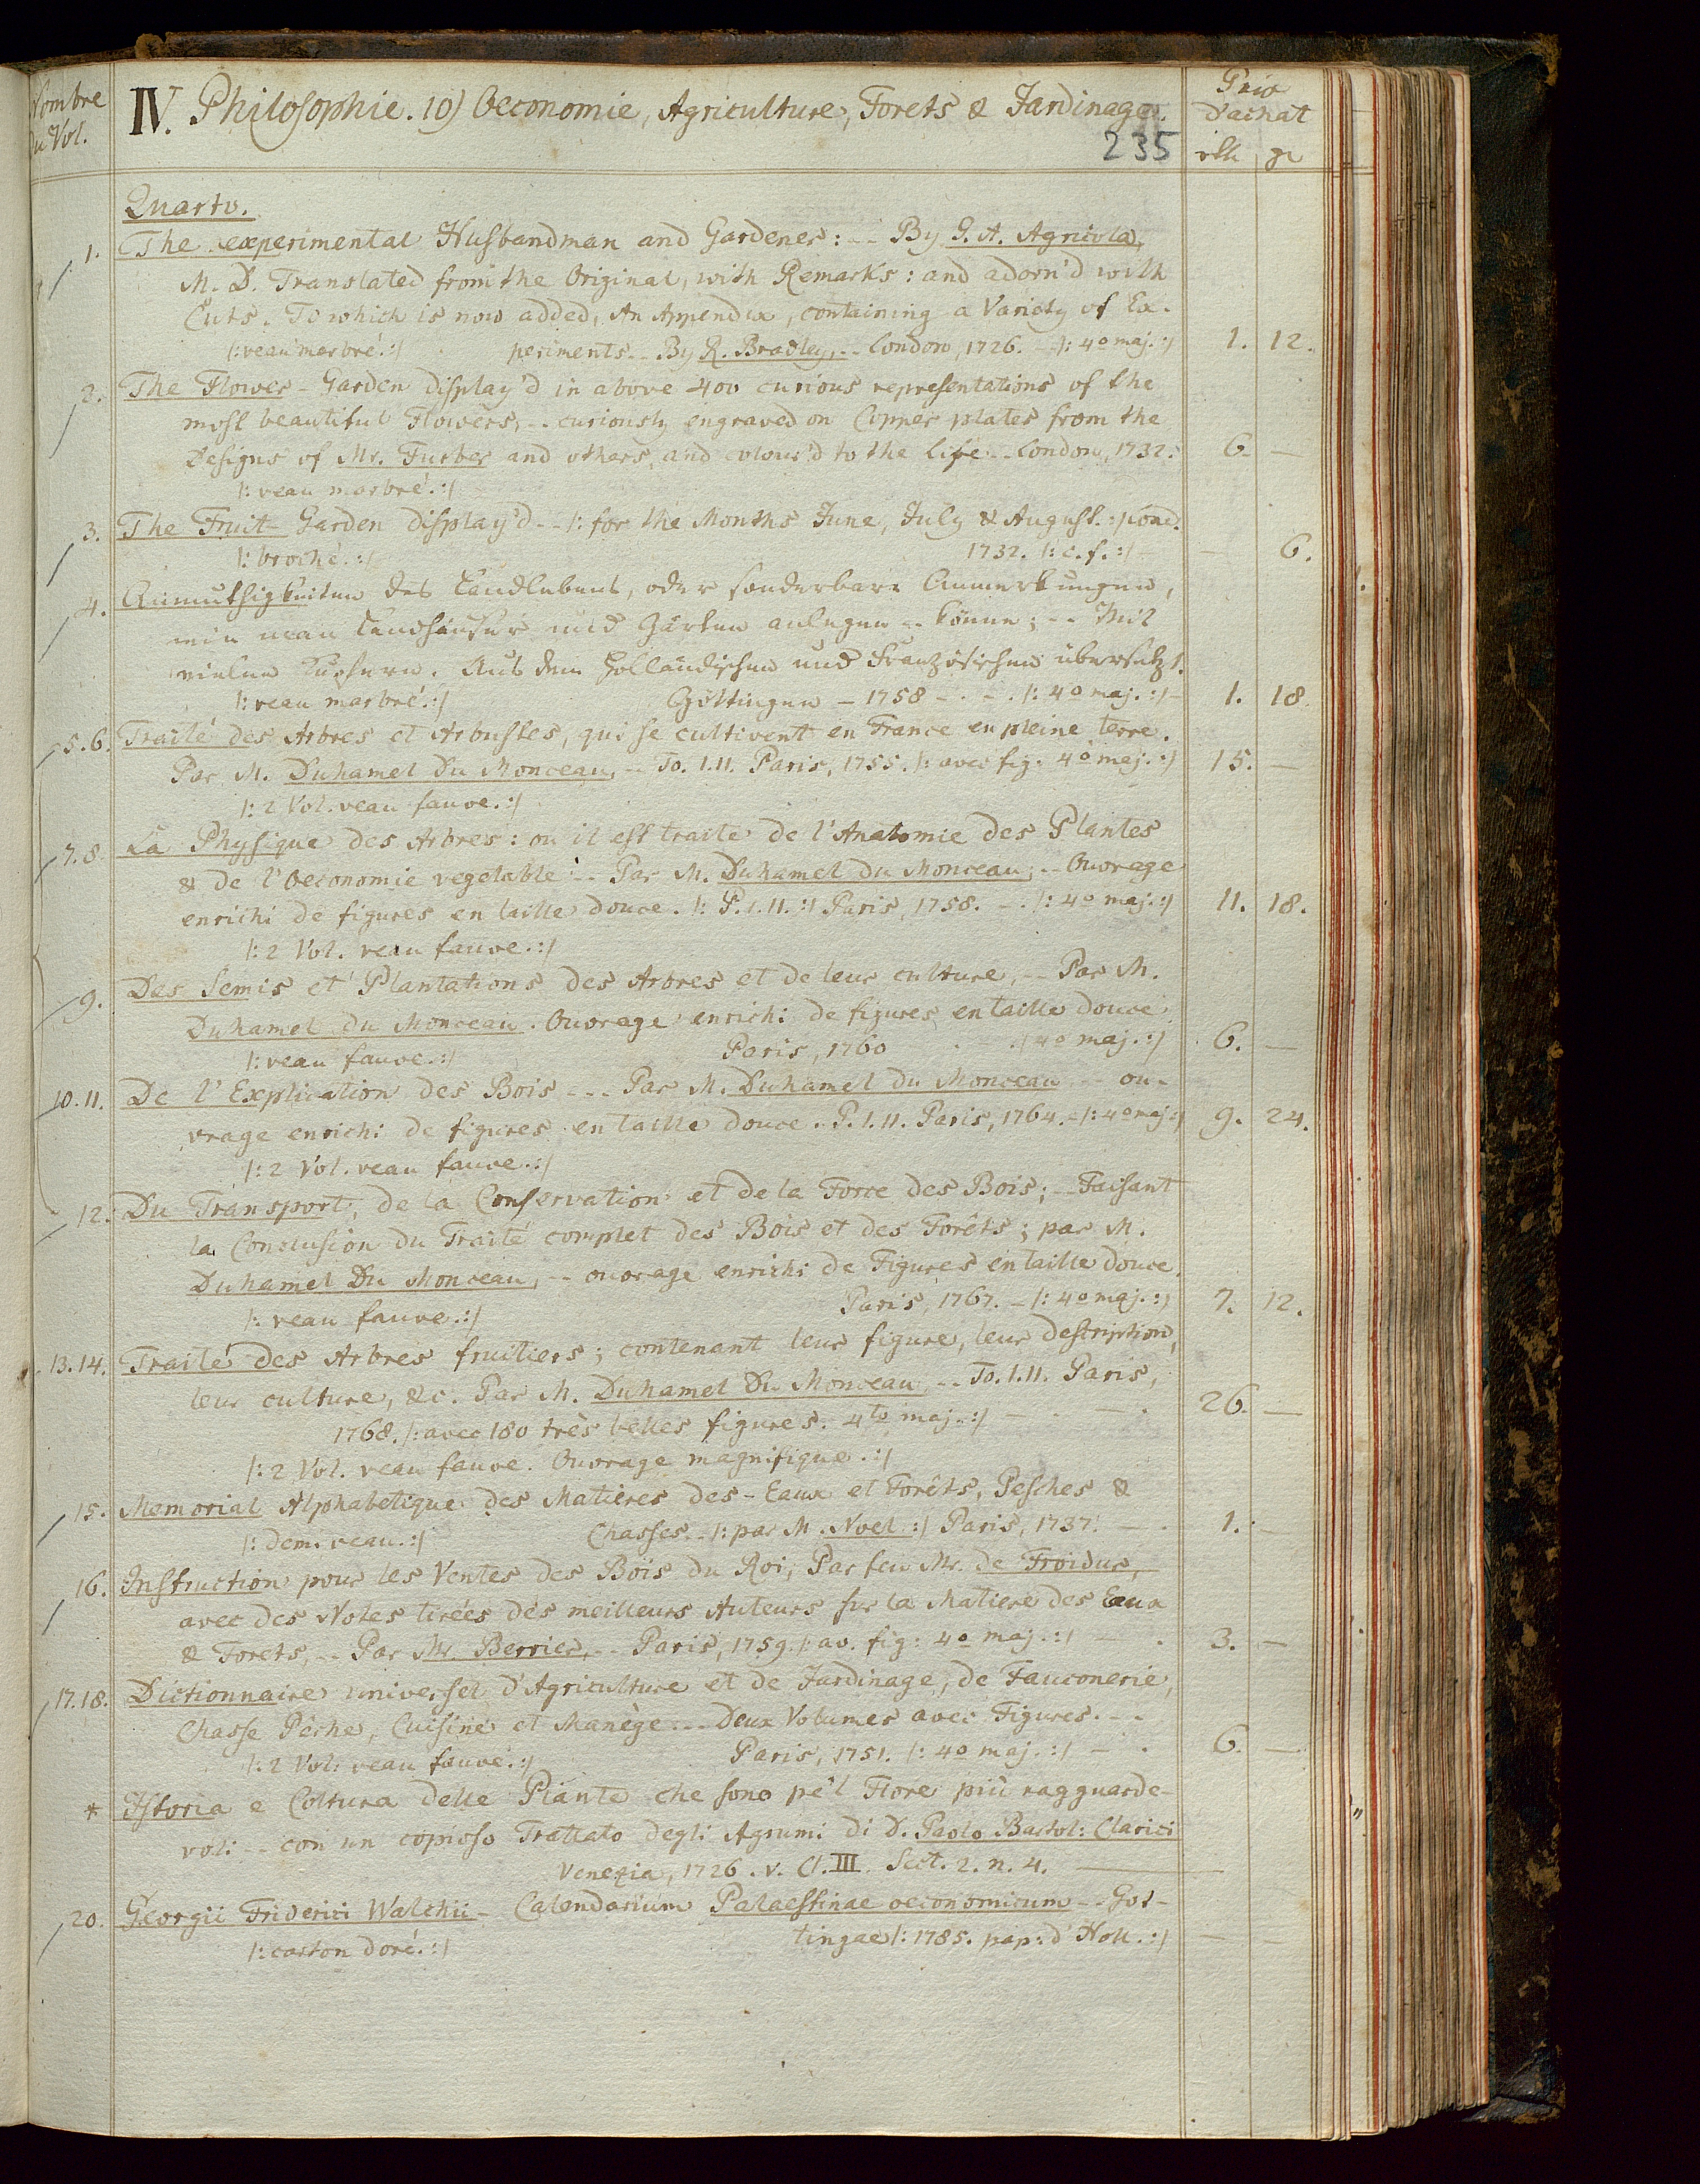 Nombre
du Vol.
IV. Philosophie. 10) Oeconomie, Agriculture, Forets & Jardinage.
235
Prix
d'achat
rth gr
Quarto.
1. The experimental Husbandman and Gardener: -- By G. A. Agricola,
M. D. Translated from the Original, with Remarks: and adorn'd with
Cuts. To which is now added, An Appendix, containing a Variety of Ex-
|: veau marbré. :| periments -- By R. Bradley, -- London, 1726. - |: 4o maj. :| 1. 12.
2. The Flower-Garden display'd in above 400 curious representations of the
most beautiful Flowers, -- curiously engraved on Copper plates from the
Designs of Mr. Furber and others, and colour'd to the life -- London, 1732. 6. —
|: veau marbré. :|
3. The Fruit-Garden display'd -- |: for the Months June, July & August. :| Lond.
|: broché. :| 1732. |: c. f. :| — 6.
4. Anmuthigkeiten des Landlebens, oder sonderbare Anmerkungen,
wie man Landhäuser und Gärten anlegen -- könne; -- Mit
vielen Kupfern. Aus dem Holländischen und Französischen übersetzt.
|: veau marbré. :| Göttingen - 1758 - . - . |: 4o maj. :| - 1. 18.
5. 6. Traité des Arbres et Arbustes, qui se cultivent en France en pleine terre.
Par M. Duhamel Du Monceau, -- To. I. II. Paris, 1755. |: avec fig. 4o maj. :| 15. —
|: 2 Vol. veau fauve. :|
7. 8. La Physique des Arbres: ou il est traité de l'Anatomie des Plantes
& de l'Oeconomie vegetable -- Par M. Duhamel Du Monceau; -- Ouvrage
enrichi de figures en taille douce. |: P. I. II. :| Paris, 1758. - . |: 4o maj. :| 11. 18.
|: 2 Vol. veau fauve. :|
9. Des Semis et Plantations des Arbres et de leur culture, -- Par M.
Duhamel du Monceau. Ouvrage enrichi de figures en taille douce
|: veau fauve. :| Paris, 1760 . . |: 4o maj. :| 6. —
10. 11. De l'Explication des Bois --- Par M. Duhamel du Monceau -- ou-
vrage enrichi de figures en taille douce. P. I. II. Paris, 1764. - |: 4o maj. :| 9. 24.
|: 2 Vol. veau fauve. :|
12. Du Transport, de la Conservation et de la Force des Bois; -- Faisant
la Conclusion du Traité complet des Bois et des Forêts; par M.
Duhamel Du Monceau, -- ouvrage enrichi de Figures en taille douce.
|: veau fauve. :| Paris, 1767. - |: 4o maj. :| 7. 12.
13. 14. Traité des Arbres fruitiers; contenant leur figure, leur description,
leur culture, &c. Par M. Duhamel Du Monceau -- To. I. II. Paris,
1768. |: avec 180 très belles figures. 4to maj. :| - . - . 26. —
|: 2 Vol. veau fauve. Ouvrage magnifique. :|
15. Memorial Alphabetique des Matières des-Eaux et Forêts, Pesches &
|: dem. veau. :| Chasses -- |: par M. Noel :| Paris, 1737. - . 1. —
16. Instruction pour les Ventes des Bois du Roi, Par feu Mr. de Froidur,
avec des Notes tirées des meilleurs Auteurs sur la Matiere des Eaux
& Forets, -- Par Mr. Berrier, -- Paris, 1759. |: av. fig: 4o maj. :| - . 3. —
17. 18. Dictionnaire universel d'Agriculture et de Jardinage, de Fauconerie,
Chasse Pêche, Cuisine et Manège -- Deux Volumes avec Figures. --
|: 2 Vol. veau fauve. :| Paris, 1751. |: 4o maj. :| - . 6. —
* Istoria e Coltura delle Piante che sono pe'l Fiore più ragguarde-
voli -- con un copioso Trattato degli Agrumi di D. Paolo Bartol: Clarici
Venezia, 1726. v. Cl. III. Sect. 2. n. 4. ——
20. Georgii Friderici Walchii - Calendarium Palaestinae oeconomicum -- Got-
|: carton doré. :| tingae |: 1785. pap: d'Holl. :| — —